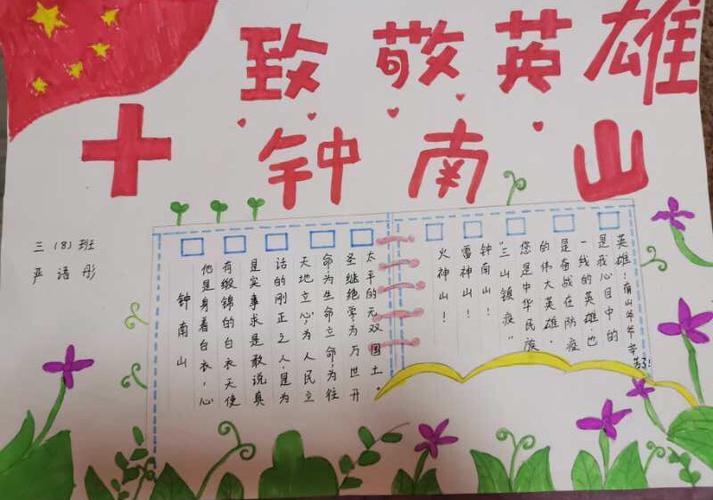 致敬英雄
钟南山
三（8）班
严语彤
钟南山
他是身着白衣，心
有缎锦的白衣天使
是实事求是敢说真
话的刚正之人，是为
天地立心，为人民立
命，为生命立命，为往
圣继绝学，为万世开
太平的无双国士。
火神山！
雷神山！
钟南山！
“三山镇疫”
您是中华民族
的伟大英雄，
是奋战在防疫
一线的英雄，也
是我心目中的
英雄！南山爷爷辛
苦了！